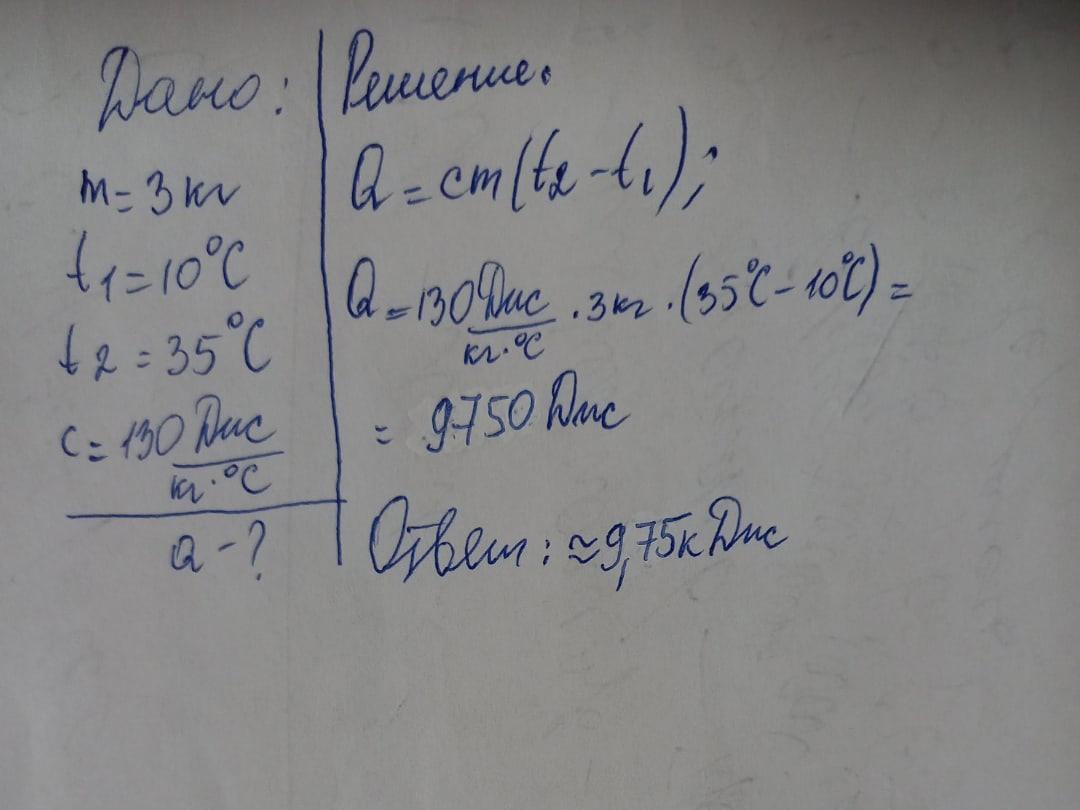 Дано:
m=3кг
t₁=10°C
t₂=35°C
c=130 Дж/кг·°C
Q-?
Решение.
Q=cm(t₂-t₁);
Q=130 Дж/кг·°C ·3кг·(35°C-10°C)=
= 9750 Дж
Ответ: ≈9,75кДж